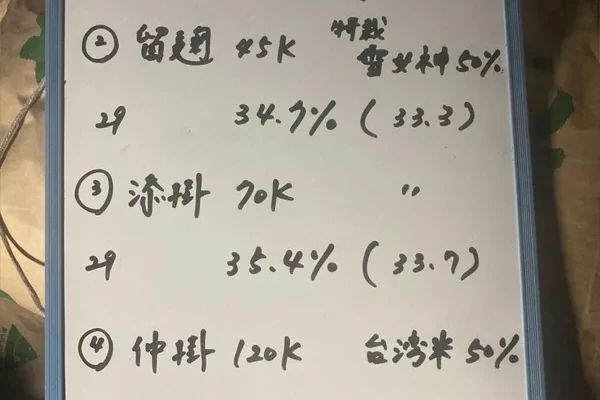 ② 留麹 45K 特栽 雪女神50%
29 34.7% (33.3)
③ 添掛 70K 〃
29 35.4% (33.7)
④ 仲掛 120K 台湾米 50%